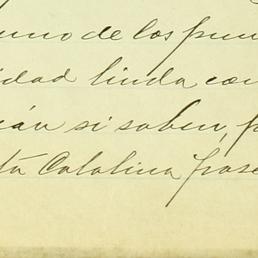 uno de los pun
idad linda con
rán si saben, p
ta Catalina frase